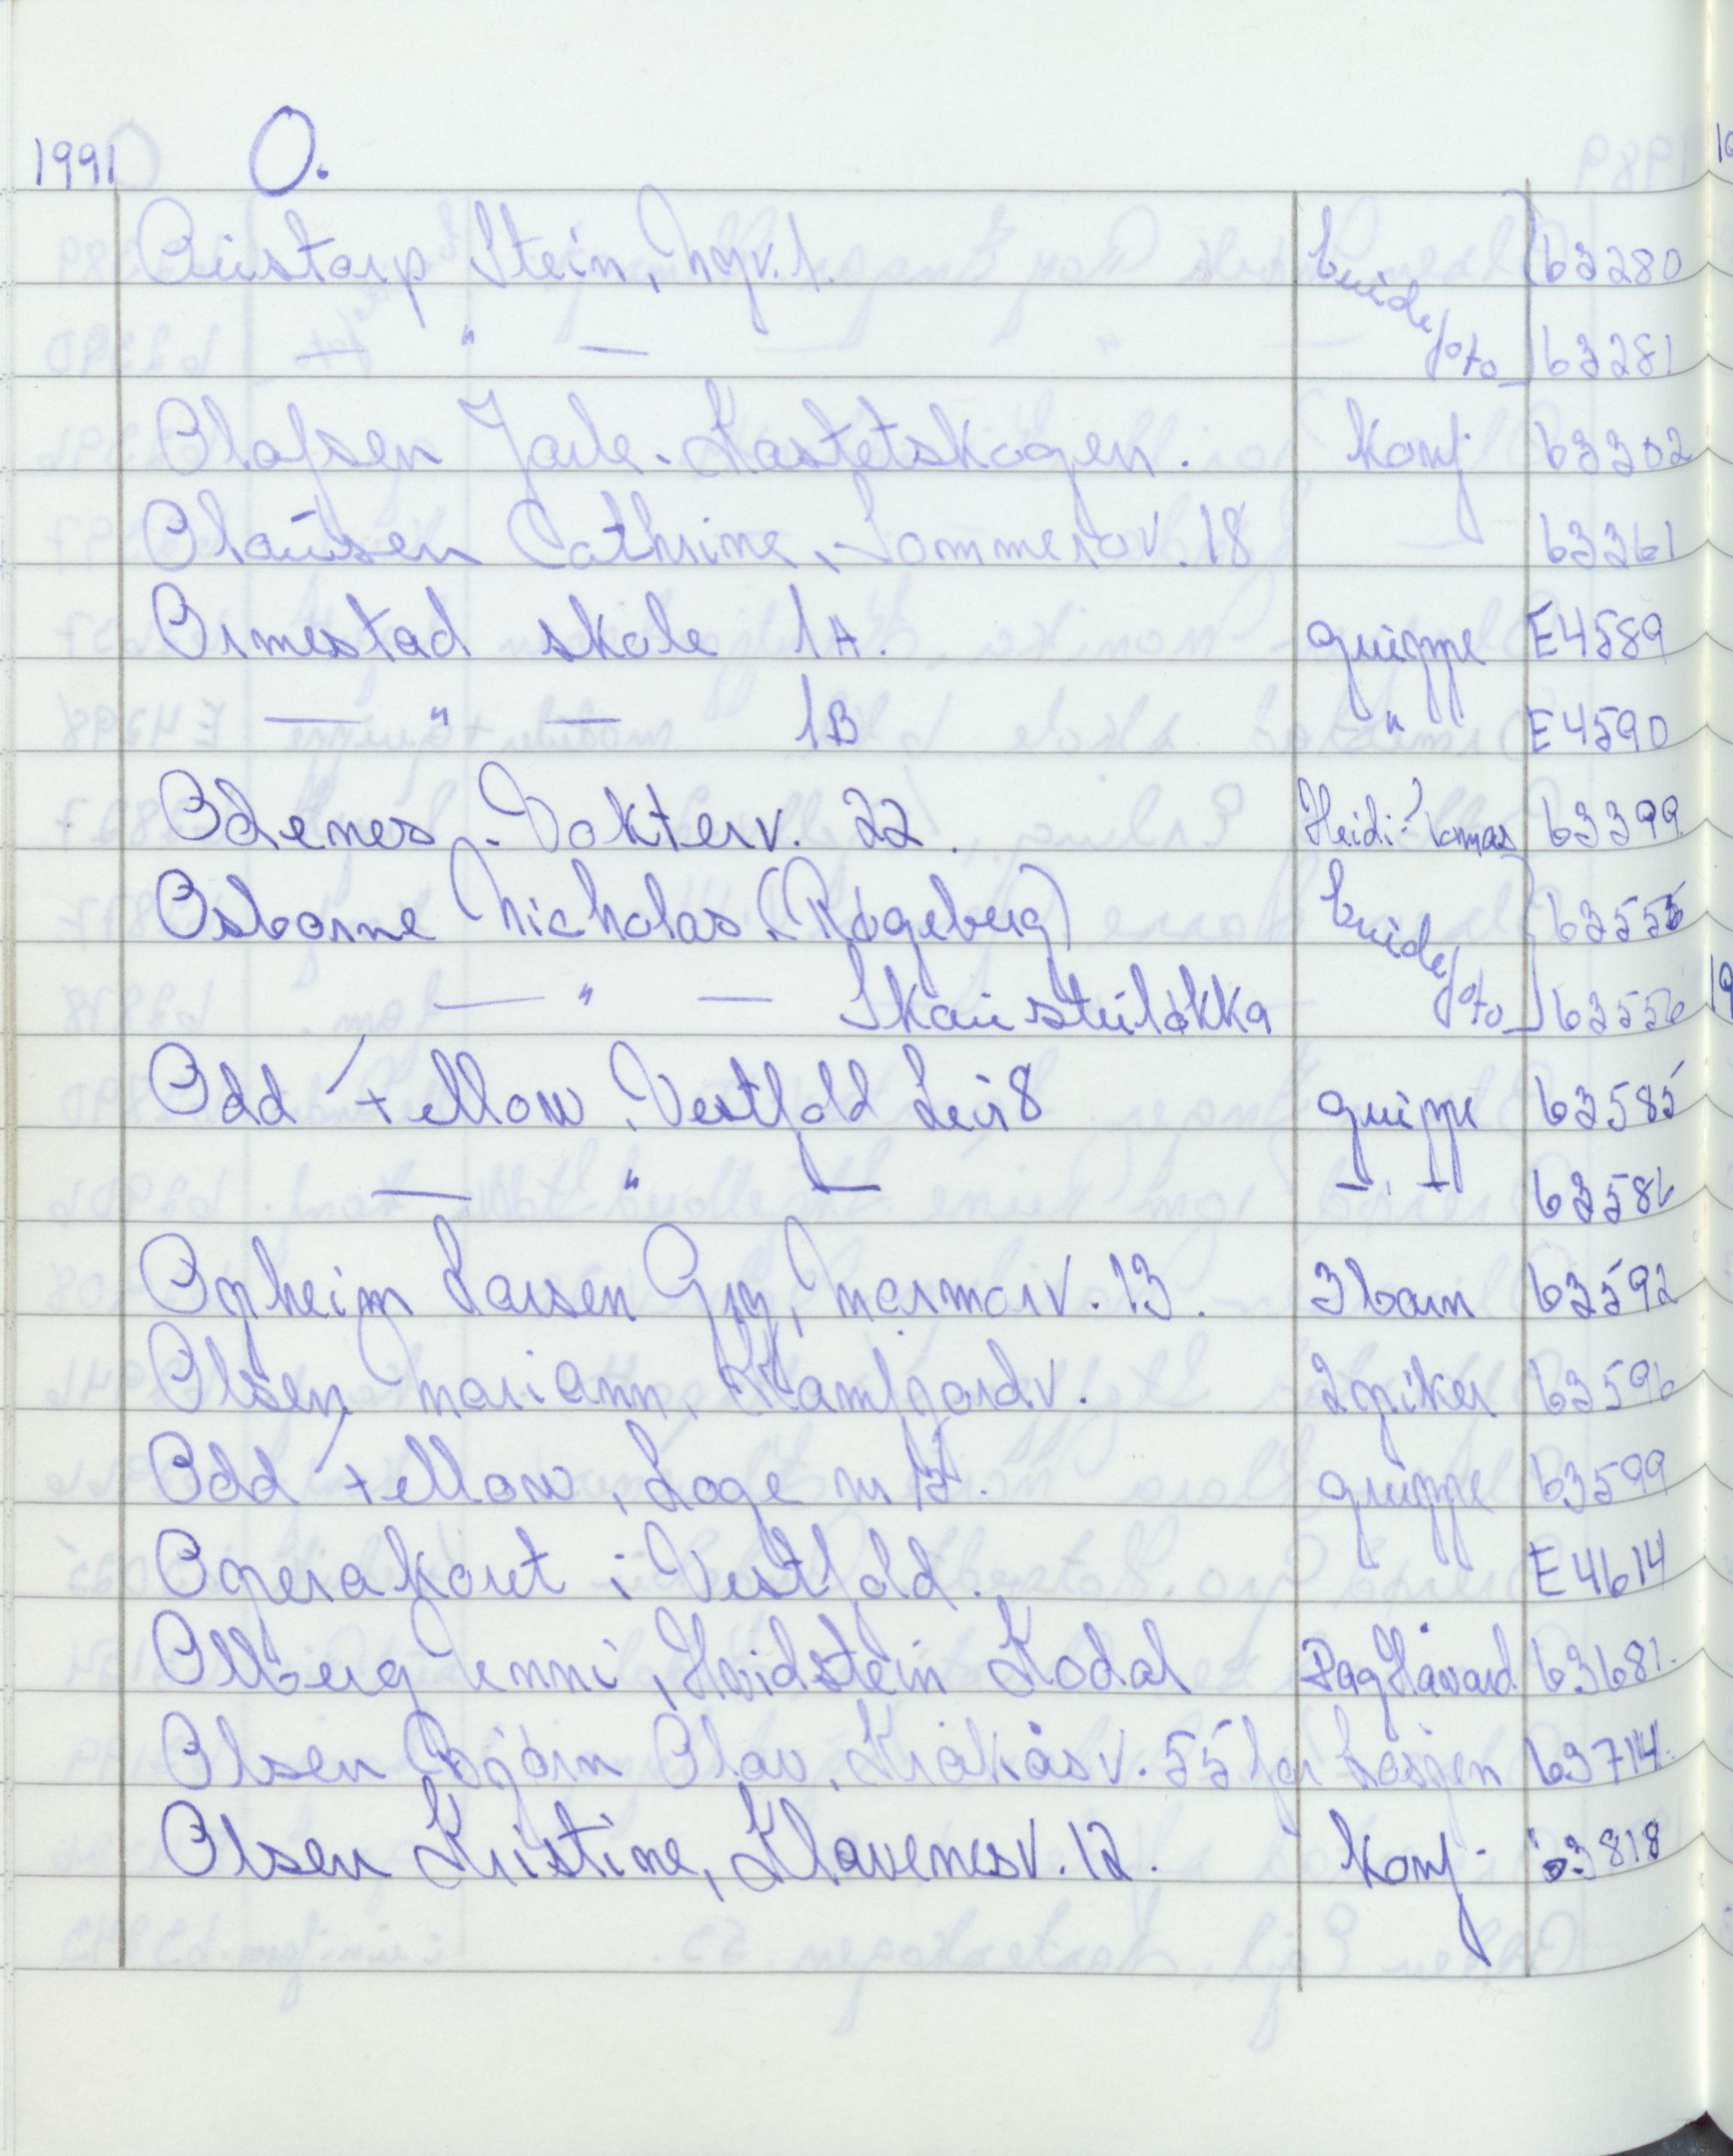 1991 O.
Austarp Stein, Nyv. 1. brudefoto 63280
— " — 63281
Olafsen Jarle. Kastetskogen. Konf. 63302
Olaüsen Cathrine, Sommerov. 18 — 63361
Ormestad skole 1A. grüppe E4589
— " — 1B " E4590
Odenes, Vokterv. 22. Heidi+Tomas 63399
Osborne Nicholas, (Røgeberg) brudefoto 63555
— " — Skaustuløkka 63556
Odd Fellow, Vestfold Leir 8 grüppe 63585
— " — - " - 63586
Opheim Larsen Gry, Marmorv. 13. 3 barn 63592
Olsen Mariann, Kamfjordv. 2 piker 63596
Odd Fellow, Loge nr 12. grüppe 63599
Operakoret i Vestfold. E4614
Olberg Unni, Hvidstein Kodal Dag Håvard 63681.
Olsen Bjørn Olav, Kråkåsv. 55 for Losjen 63714.
Olsen Kristine, Klavenesv. 12. Konf. 63818